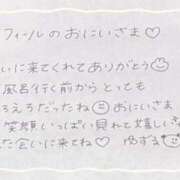 フィールのおにいさま♡
いに来てくれてありがとう
風呂行く前から とっても
ろえろだったね おにいさま
笑顔いっぱい見れて嬉しい
た会いに来てね ゆずき